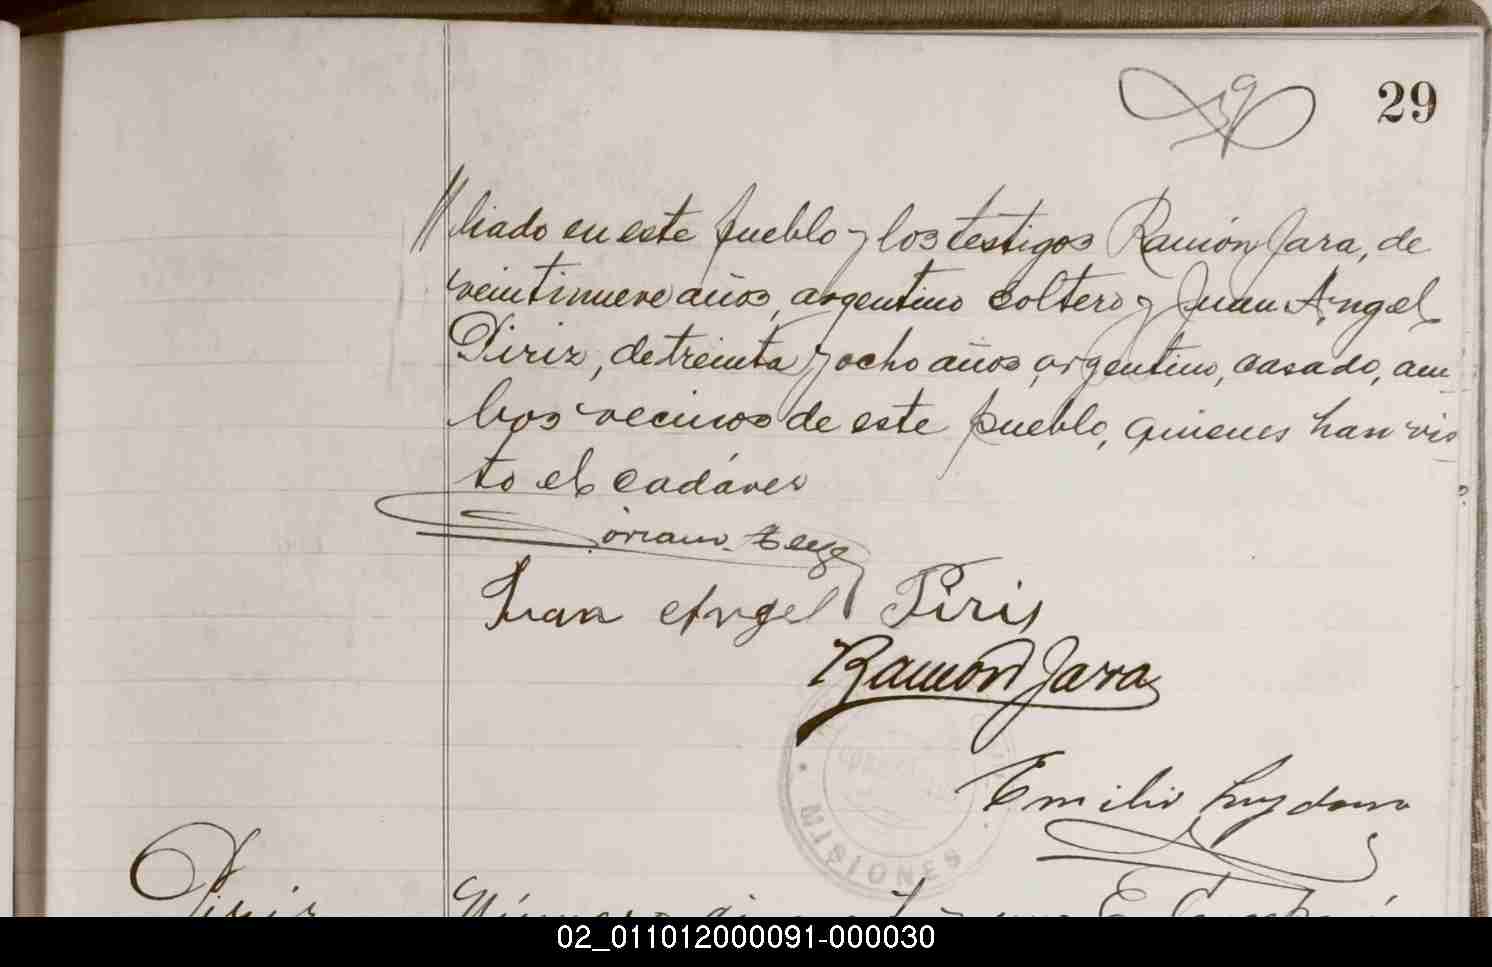 29
29
// liado en este pueblo y los testigos Ramón Jara, de
veintinueve años, argentino soltero y Juan Angel
Piriz, de treinta y ocho años, argentino, casado, am
bos vecinos de este pueblo, quienes han vis
to el cadáver
Juan Angel Piris
Ramon Jara
Emilio
MISIONES
Piriz
Número
02_011012000091-000030